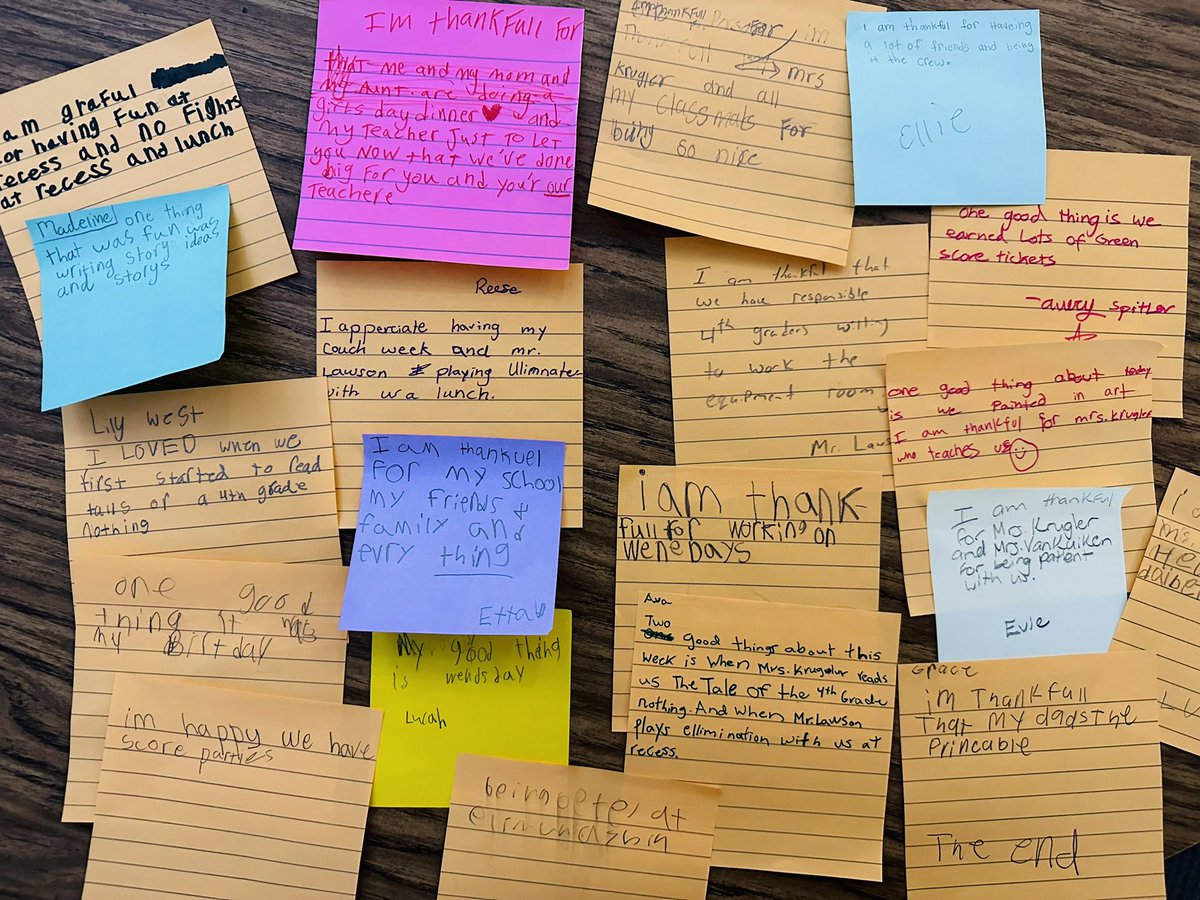 am graful
for having Fun at
recess and no Fights
at recess and lunch
Madeline one thing
that was fun was
writing story ideas
and storys
Im thankfull for
that me and my mom and
my Aunt. are doing a
gifts day dinner ❤ and
my teacher Just to let
you NOW that we've done
big for you and you'r our
Teachere
im
thinkfull mrs
Krugler and all
my classmats For
so nice
I am thankful for Haveing
a lot of friends and being
in the crew.
Ellie
one good thing is we
earned lots of Green
score tickets
-avery spitler
Reese
I apperciate having my
Couch week and mr.
Lawson playing Ulimnate
with us a lunch.
I am thankful that
we have responsible
4th graders willing
to work the
equipment room
Mr. Laws
one good thing about today
is we painted in art
I am thankful for mrs. Krugler
who teaches us
Lily west
I LOVED when we
first started to read
tails of a 4th grade
nothing
I am thankuel
FOR my SCHOOL
my friends &
family and
evry thing
Etta
i am thank-
full for working on
Wenedays
I am thankful
for Mrs. Krugler
and Mrs. Vankuiken
for being patient
with us.
Evie
one good
thing it was
my Birtday
My good thing
is wendsday
Ava
Two
good things about this
week is when Mrs. Krugelur reads
us The Tale of the 4th Grade
nothing. And when Mr. Lawson
plays ellimination with us at
recess.
Grace
im Thankfull
That my dads The
Princable
The end
im happy we have
score parties
being at